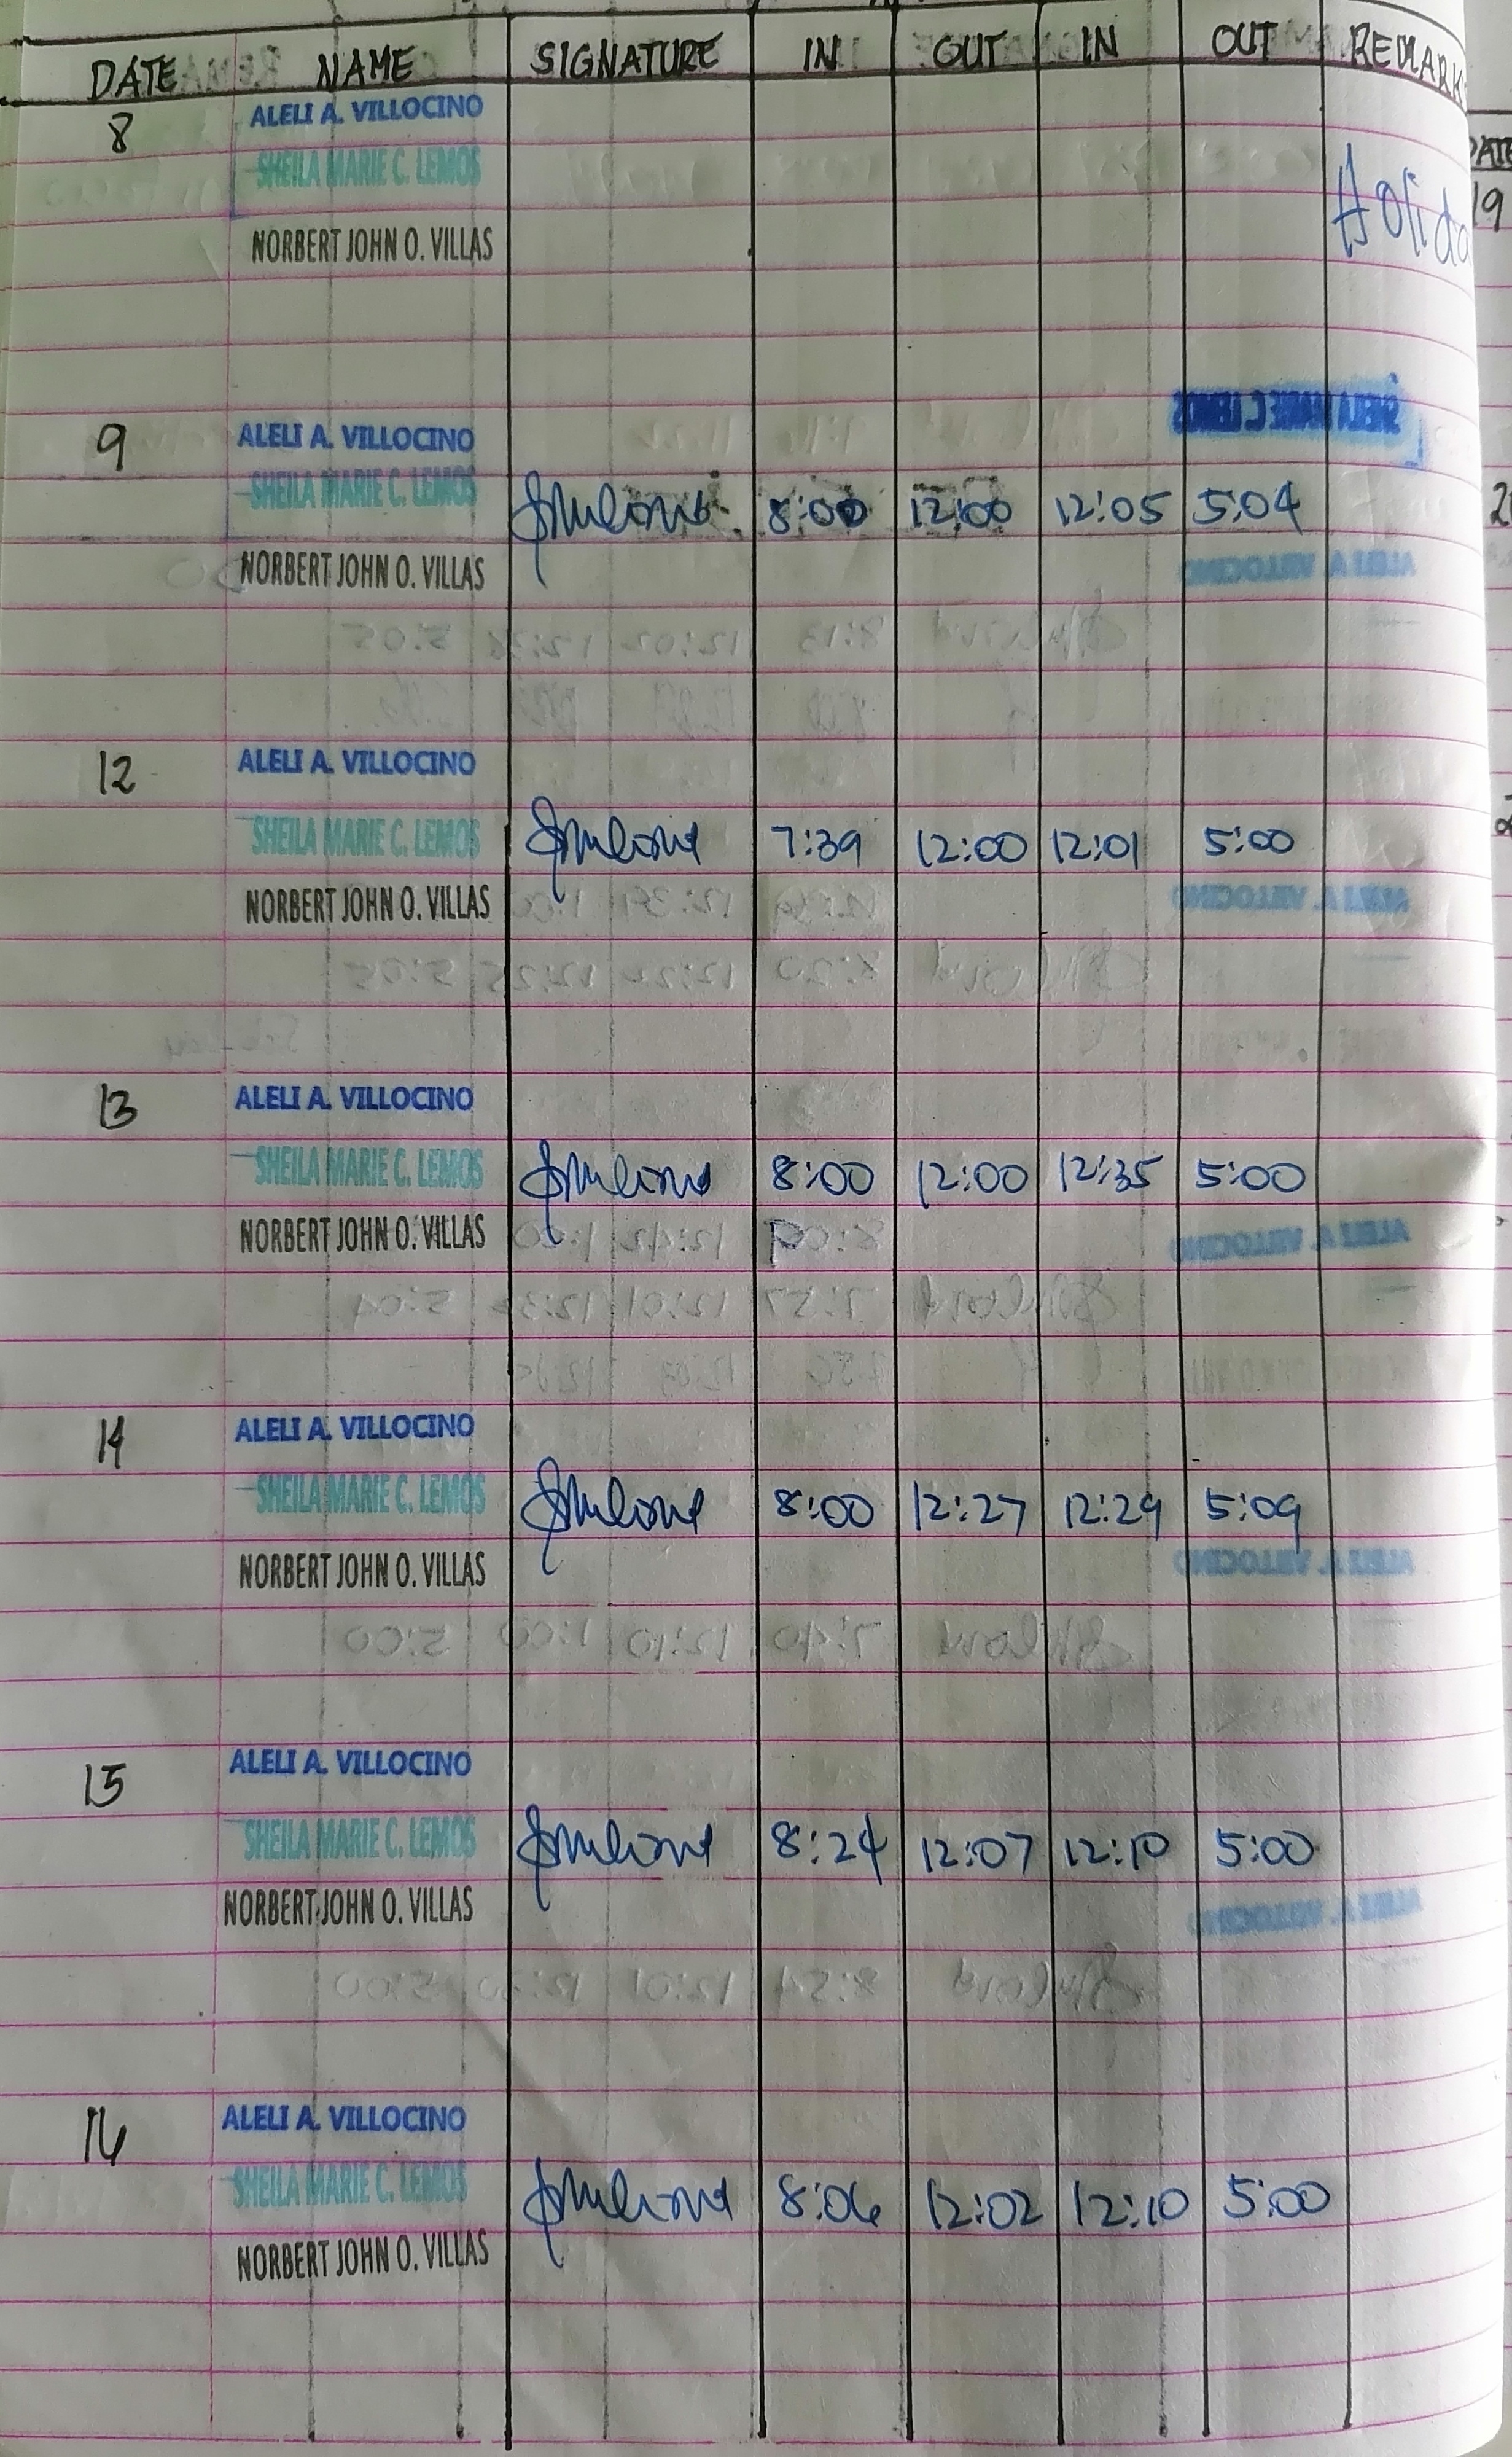 DATE NAME SIGNATURE IN OUT IN OUT REMARK
8 ALELI A. VILLOCINO
SHEILA MARIE C. LEMOS
NORBERT JOHN O. VILLAS
Holida
9 ALELI A. VILLOCINO
SHEILA MARIE C. LEMOS 8:00 12:00 12:05 5:04
NORBERT JOHN O. VILLAS
12 ALELI A. VILLOCINO
SHEILA MARIE C. LEMOS 7:39 12:00 12:01 5:00
NORBERT JOHN O. VILLAS
13 ALELI A. VILLOCINO
SHEILA MARIE C. LEMOS 8:00 12:00 12:35 5:00
NORBERT JOHN O. VILLAS
14 ALELI A. VILLOCINO
SHEILA MARIE C. LEMOS 8:00 12:27 12:29 5:09
NORBERT JOHN O. VILLAS
15 ALELI A. VILLOCINO
SHEILA MARIE C. LEMOS 8:24 12:07 12:10 5:00
NORBERT JOHN O. VILLAS
16 ALELI A. VILLOCINO
SHEILA MARIE C. LEMOS 8:06 12:02 12:10 5:00
NORBERT JOHN O. VILLAS
DATE
19